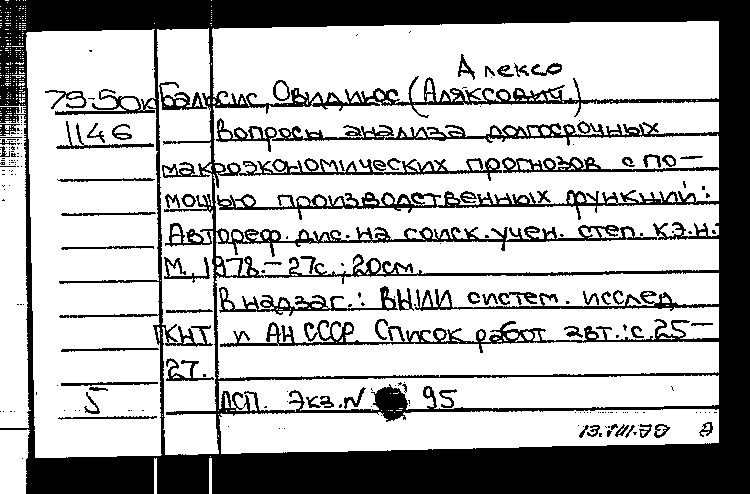 Алексо
79-50к Бальсис, Овидиюс (Аляксович.)
1146 Вопросы анализа долгосрочных
макроэкономических прогнозов с по-
мощью производственных функций:
Автореф. дис. на соиск. учен. степ. к.э.н.
М., 1978. - 27с.; 20см.
В надзаг.: ВНИИ систем. исслед.
ГКНТ и АН СССР. Список работ авт.: с.25-
27.
5 ДСП. Экз. N 95
13.VIII.79